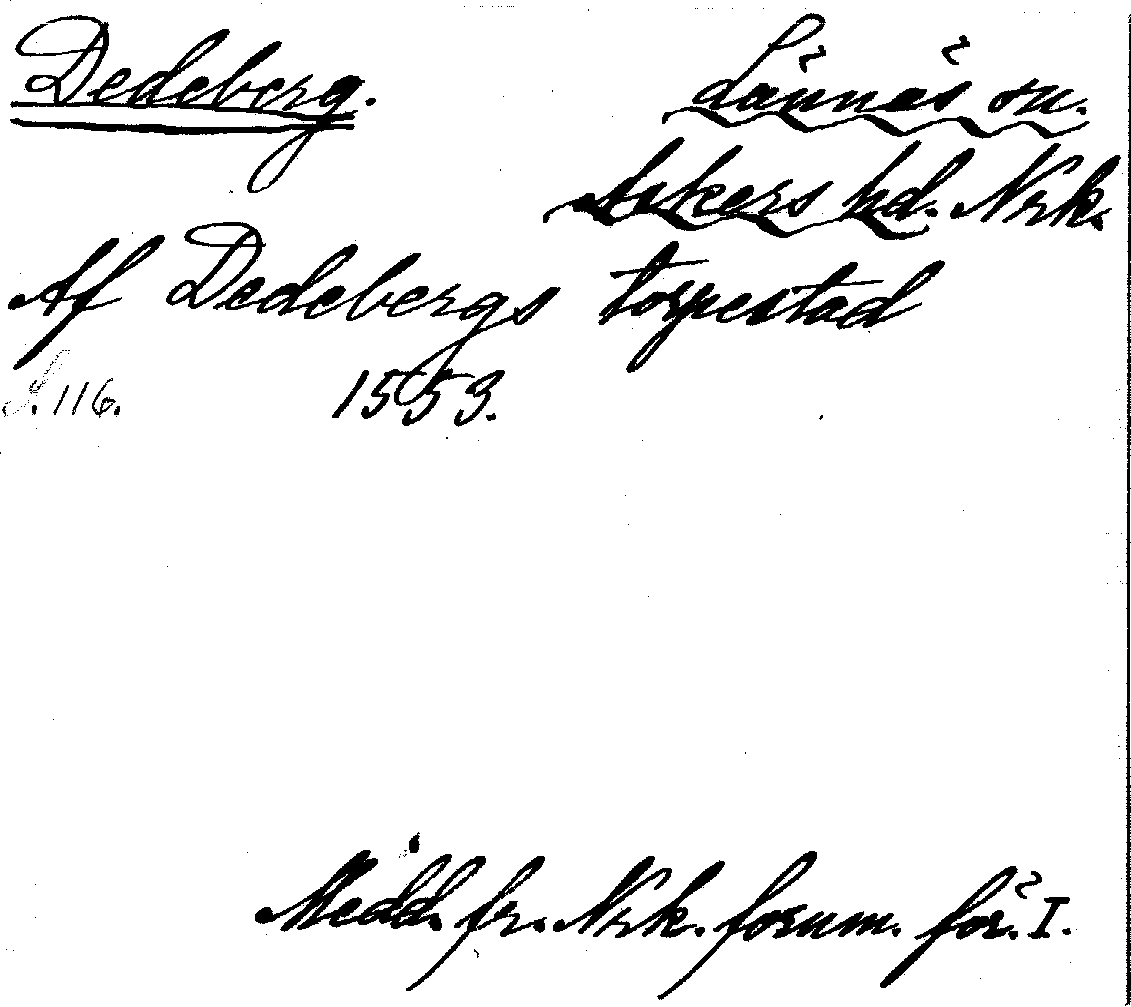 Dedeberg.
Lännäs sn.
Askers hd. Nrk.
Af Dedebergs torpestad
S. 116. 1553.
Medd. fr. Nrk. fornm. för. I.